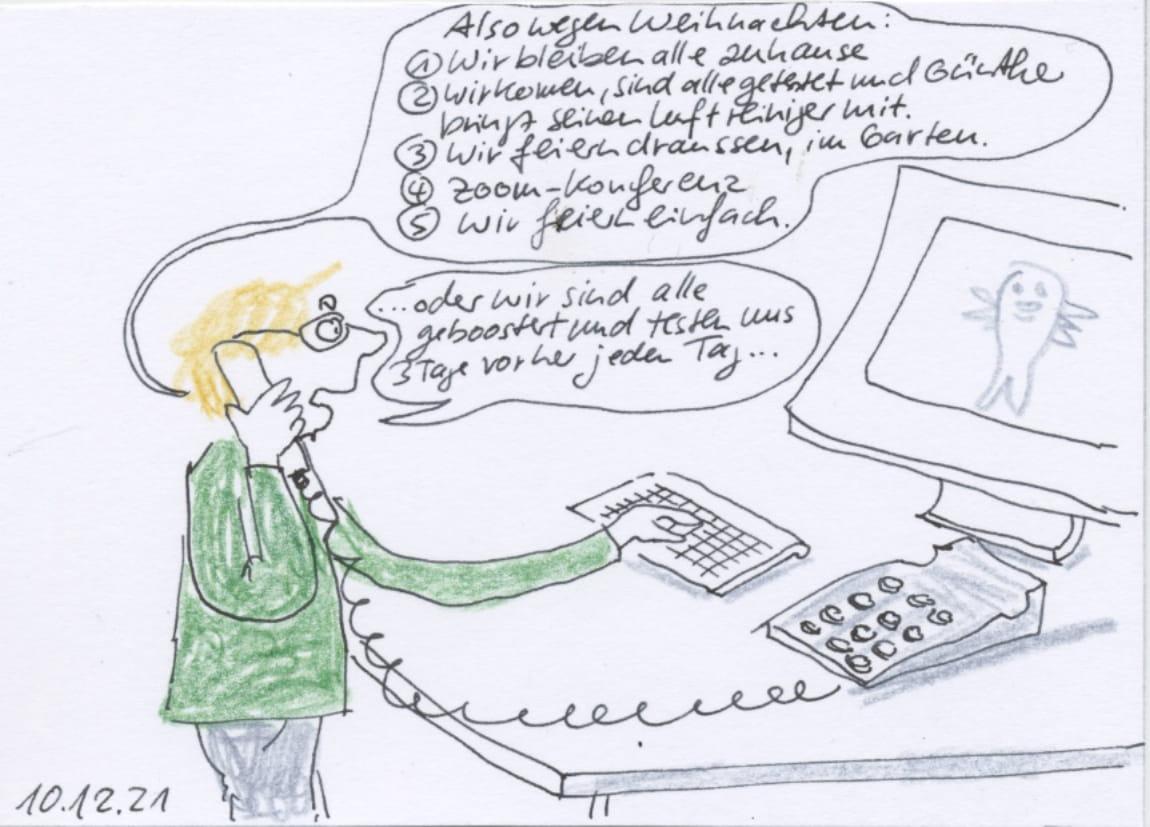 Also wegen Weihnachten:
① Wir bleiben alle zuhause
② wir komen, sind alle getestet und Günther
bringt seinen Luftreiniger mit.
③ Wir feiern draussen, im Garten.
④ Zoom-Konferenz
⑤ Wir feiern einfach.
...oder wir sind alle
geboostert und testen uns
3 Tage vorher jeden Tag...
10.12.21